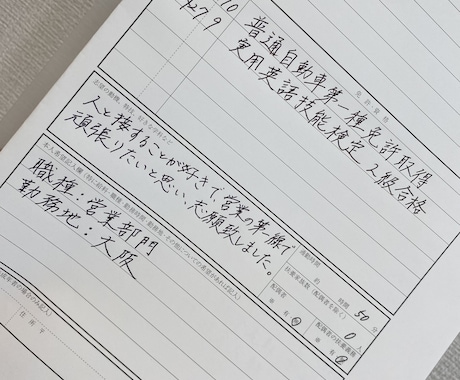 10
7
9
免許・資格
普通自動車第一種免許取得
実用英語技能検定 2級合格
人と接することが好きで、営業の第一線で
頑張りたいと思い、応願致しました。
通勤時間
約 時間 50 分
扶養家族数(配偶者を除く)
0 人
配偶者
有 無
配偶者の扶養義務
有 無
職種：営業部門
勤務地：大阪
住所 〒